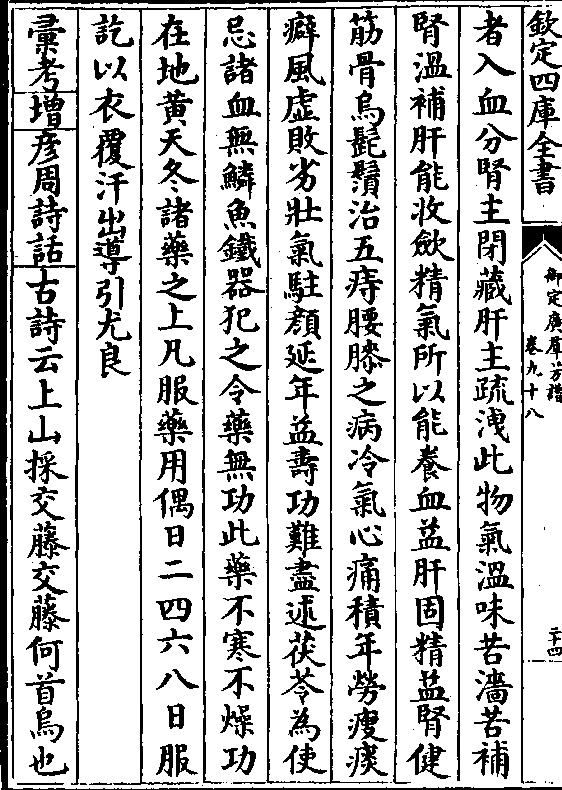 欽定四庫全書
御定廣羣芳譜
卷九十八
二十四
者入血分腎主閉藏肝主疏洩此物氣溫味苦濇苦補
腎溫補肝能收斂精氣所以能養血益肝固精益腎健
筋骨烏髭鬚治五痔腰膝之病冷氣心痛積年勞瘦痰
癖風虛敗劣壯氣駐顏延年益壽功難盡述茯苓為使
忌諸血無鱗魚鐵器犯之令藥無功此藥不寒不燥功
在地黃天冬諸藥之上凡服藥用偶日二四六八日服
訖以衣覆汗出導引尤良
彙考增彦周詩話古詩云上山採交藤交藤何首烏也